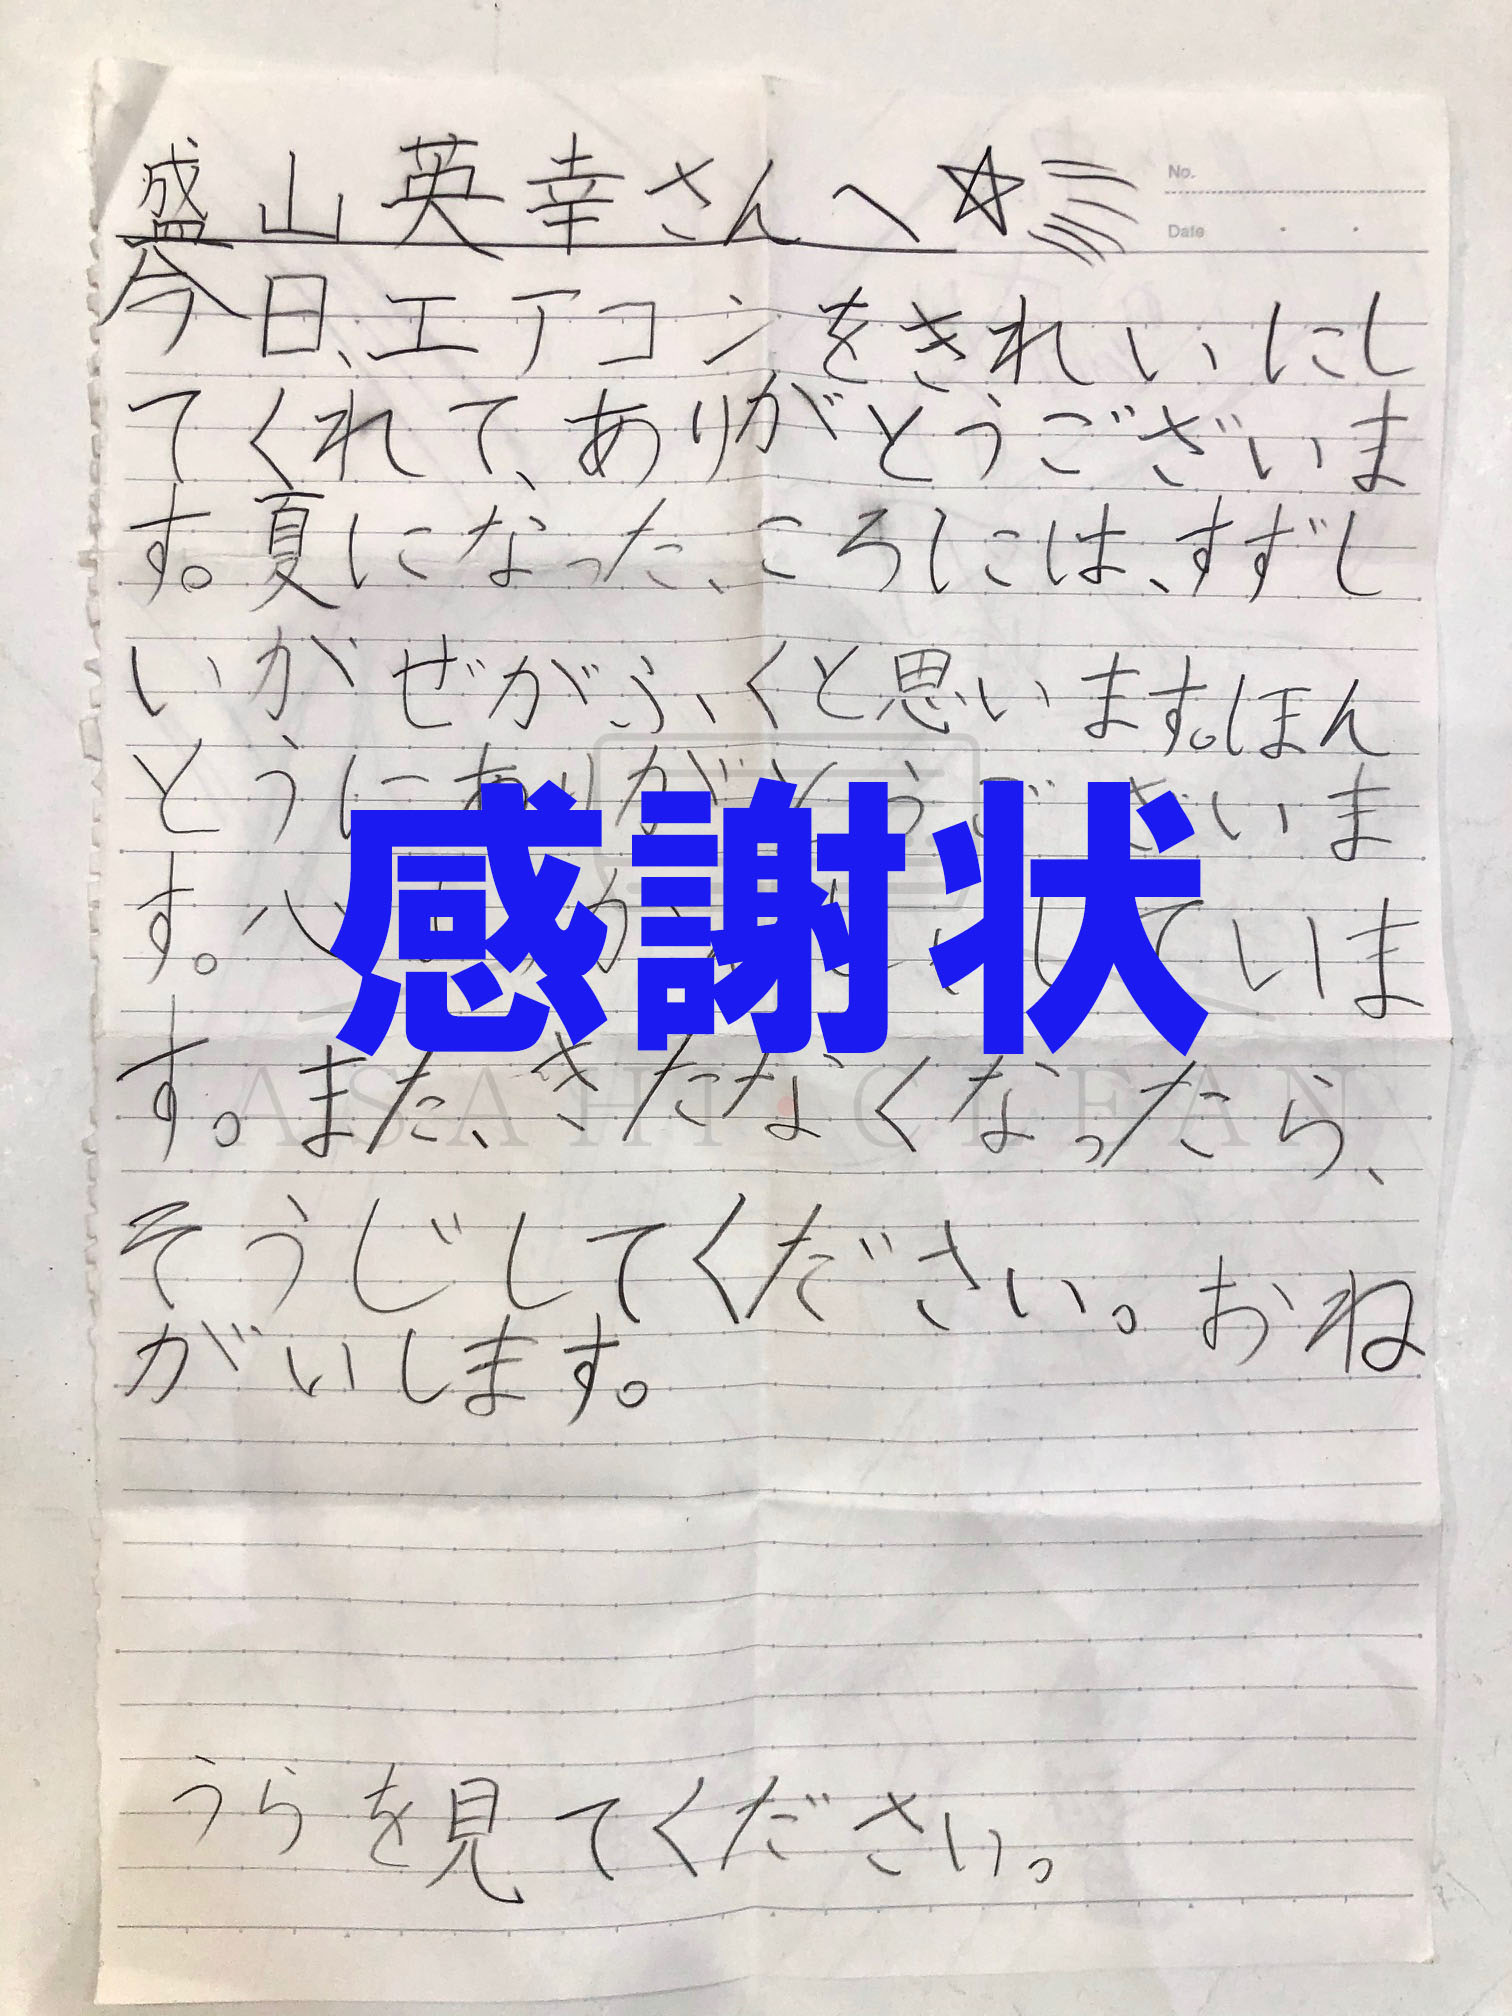 盛山英幸さんへ☆
No.
Date
今日、エアコンをきれいにし
てくれて、ありがとうございま
す。夏になった、ころには、すずし
いかぜがふくと思います。ほん
とうにありがとうございま
感謝状
す。心 していま
す。また、きたなくなったら、
ASAHI CLEAN
そうじしてください。おね
がいします。
うらを見てください。